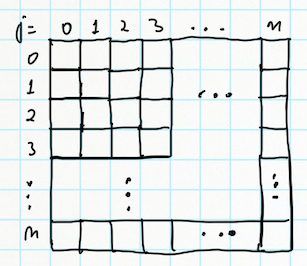 j= 0 1 2 3 ... n
0
1 ...
2
3
⋮ ⋮ ⋮
n ...